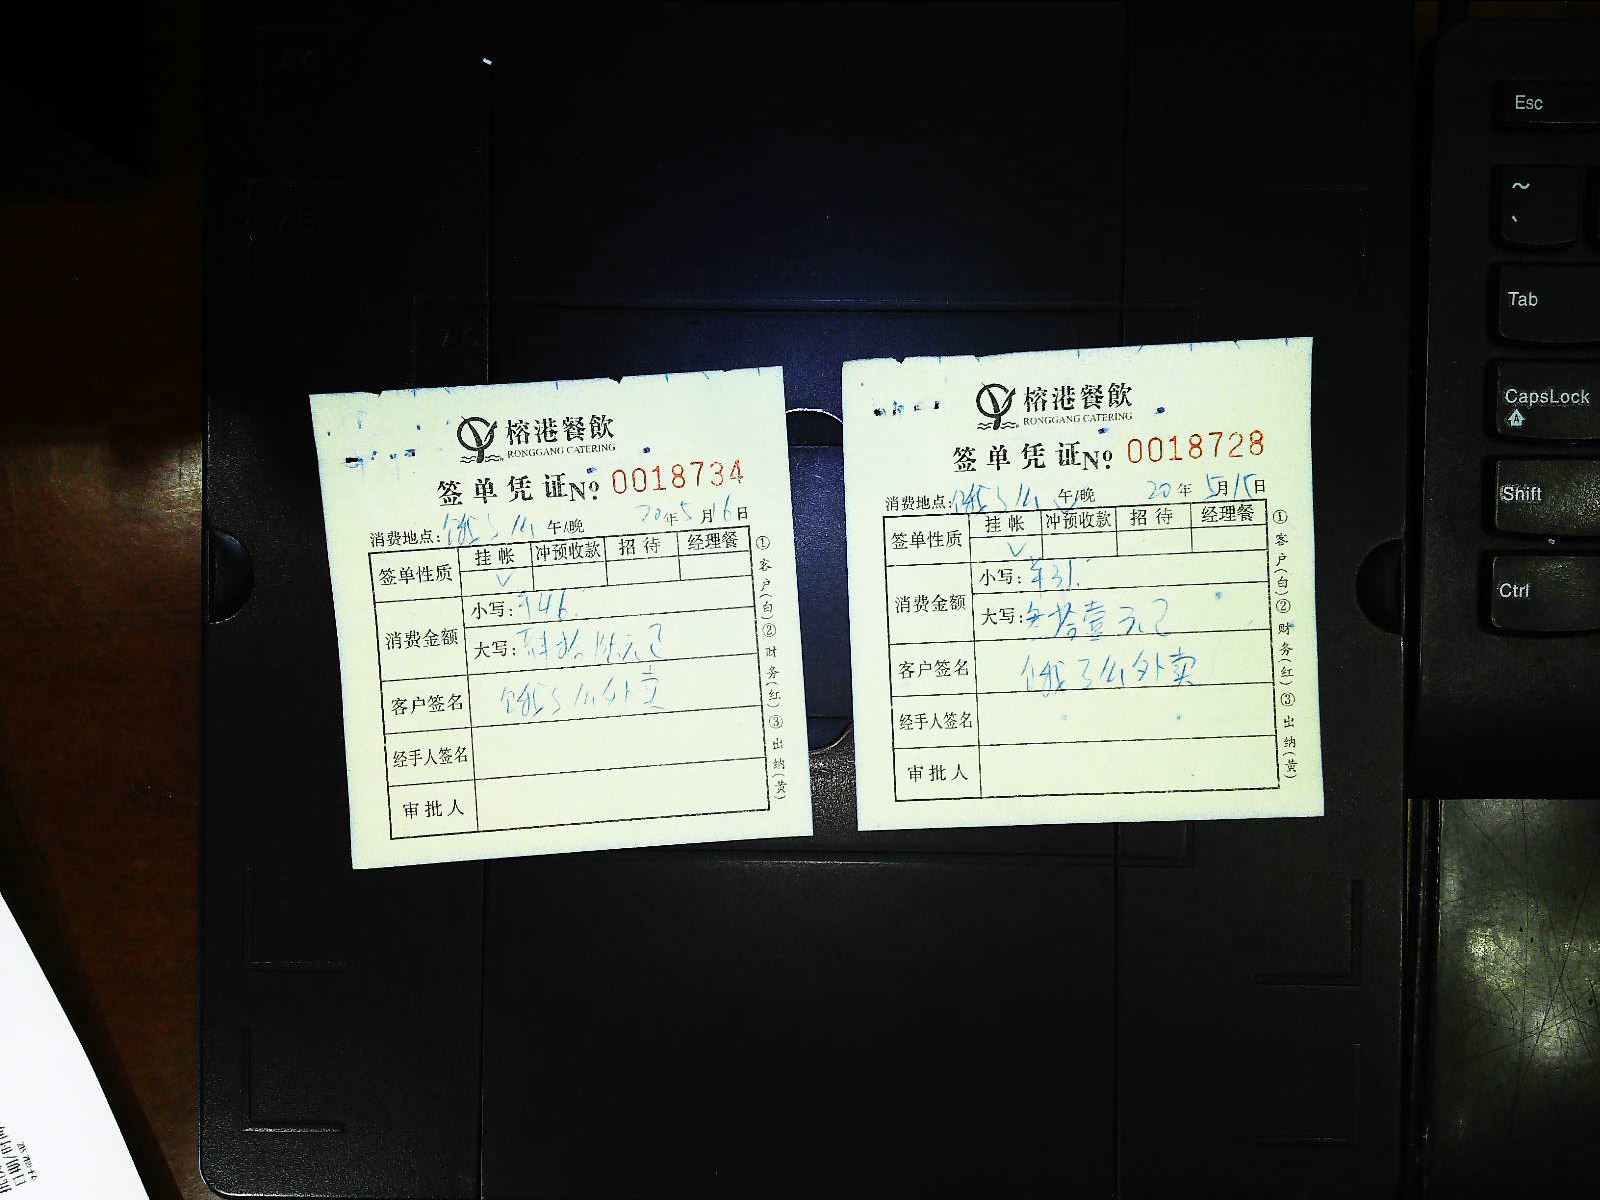 榕港餐飲
RONGGANG CATERING
签单凭证№ 0018734
消费地点: 饿了么 午/晚 20年5月16日
签单性质 挂帐 冲预收款 招待 经理餐
√
消费金额 小写: ¥46.
大写: 肆拾陆元正
客户签名 饿了么外卖
经手人签名
审批人
①客户(白)②财务(红)③出纳(黄)
榕港餐飲
RONGGANG CATERING
签单凭证№ 0018728
消费地点: 饿了么 午/晚 20年5月15日
签单性质 挂帐 冲预收款 招待 经理餐
√
消费金额 小写: ¥31.
大写: 拾壹元
客户签名 饿了么外卖
经手人签名
审批人
①客户(白)②财务(红)③出纳(黄)
Esc
~
Tab
CapsLock
A
Shift
Ctrl